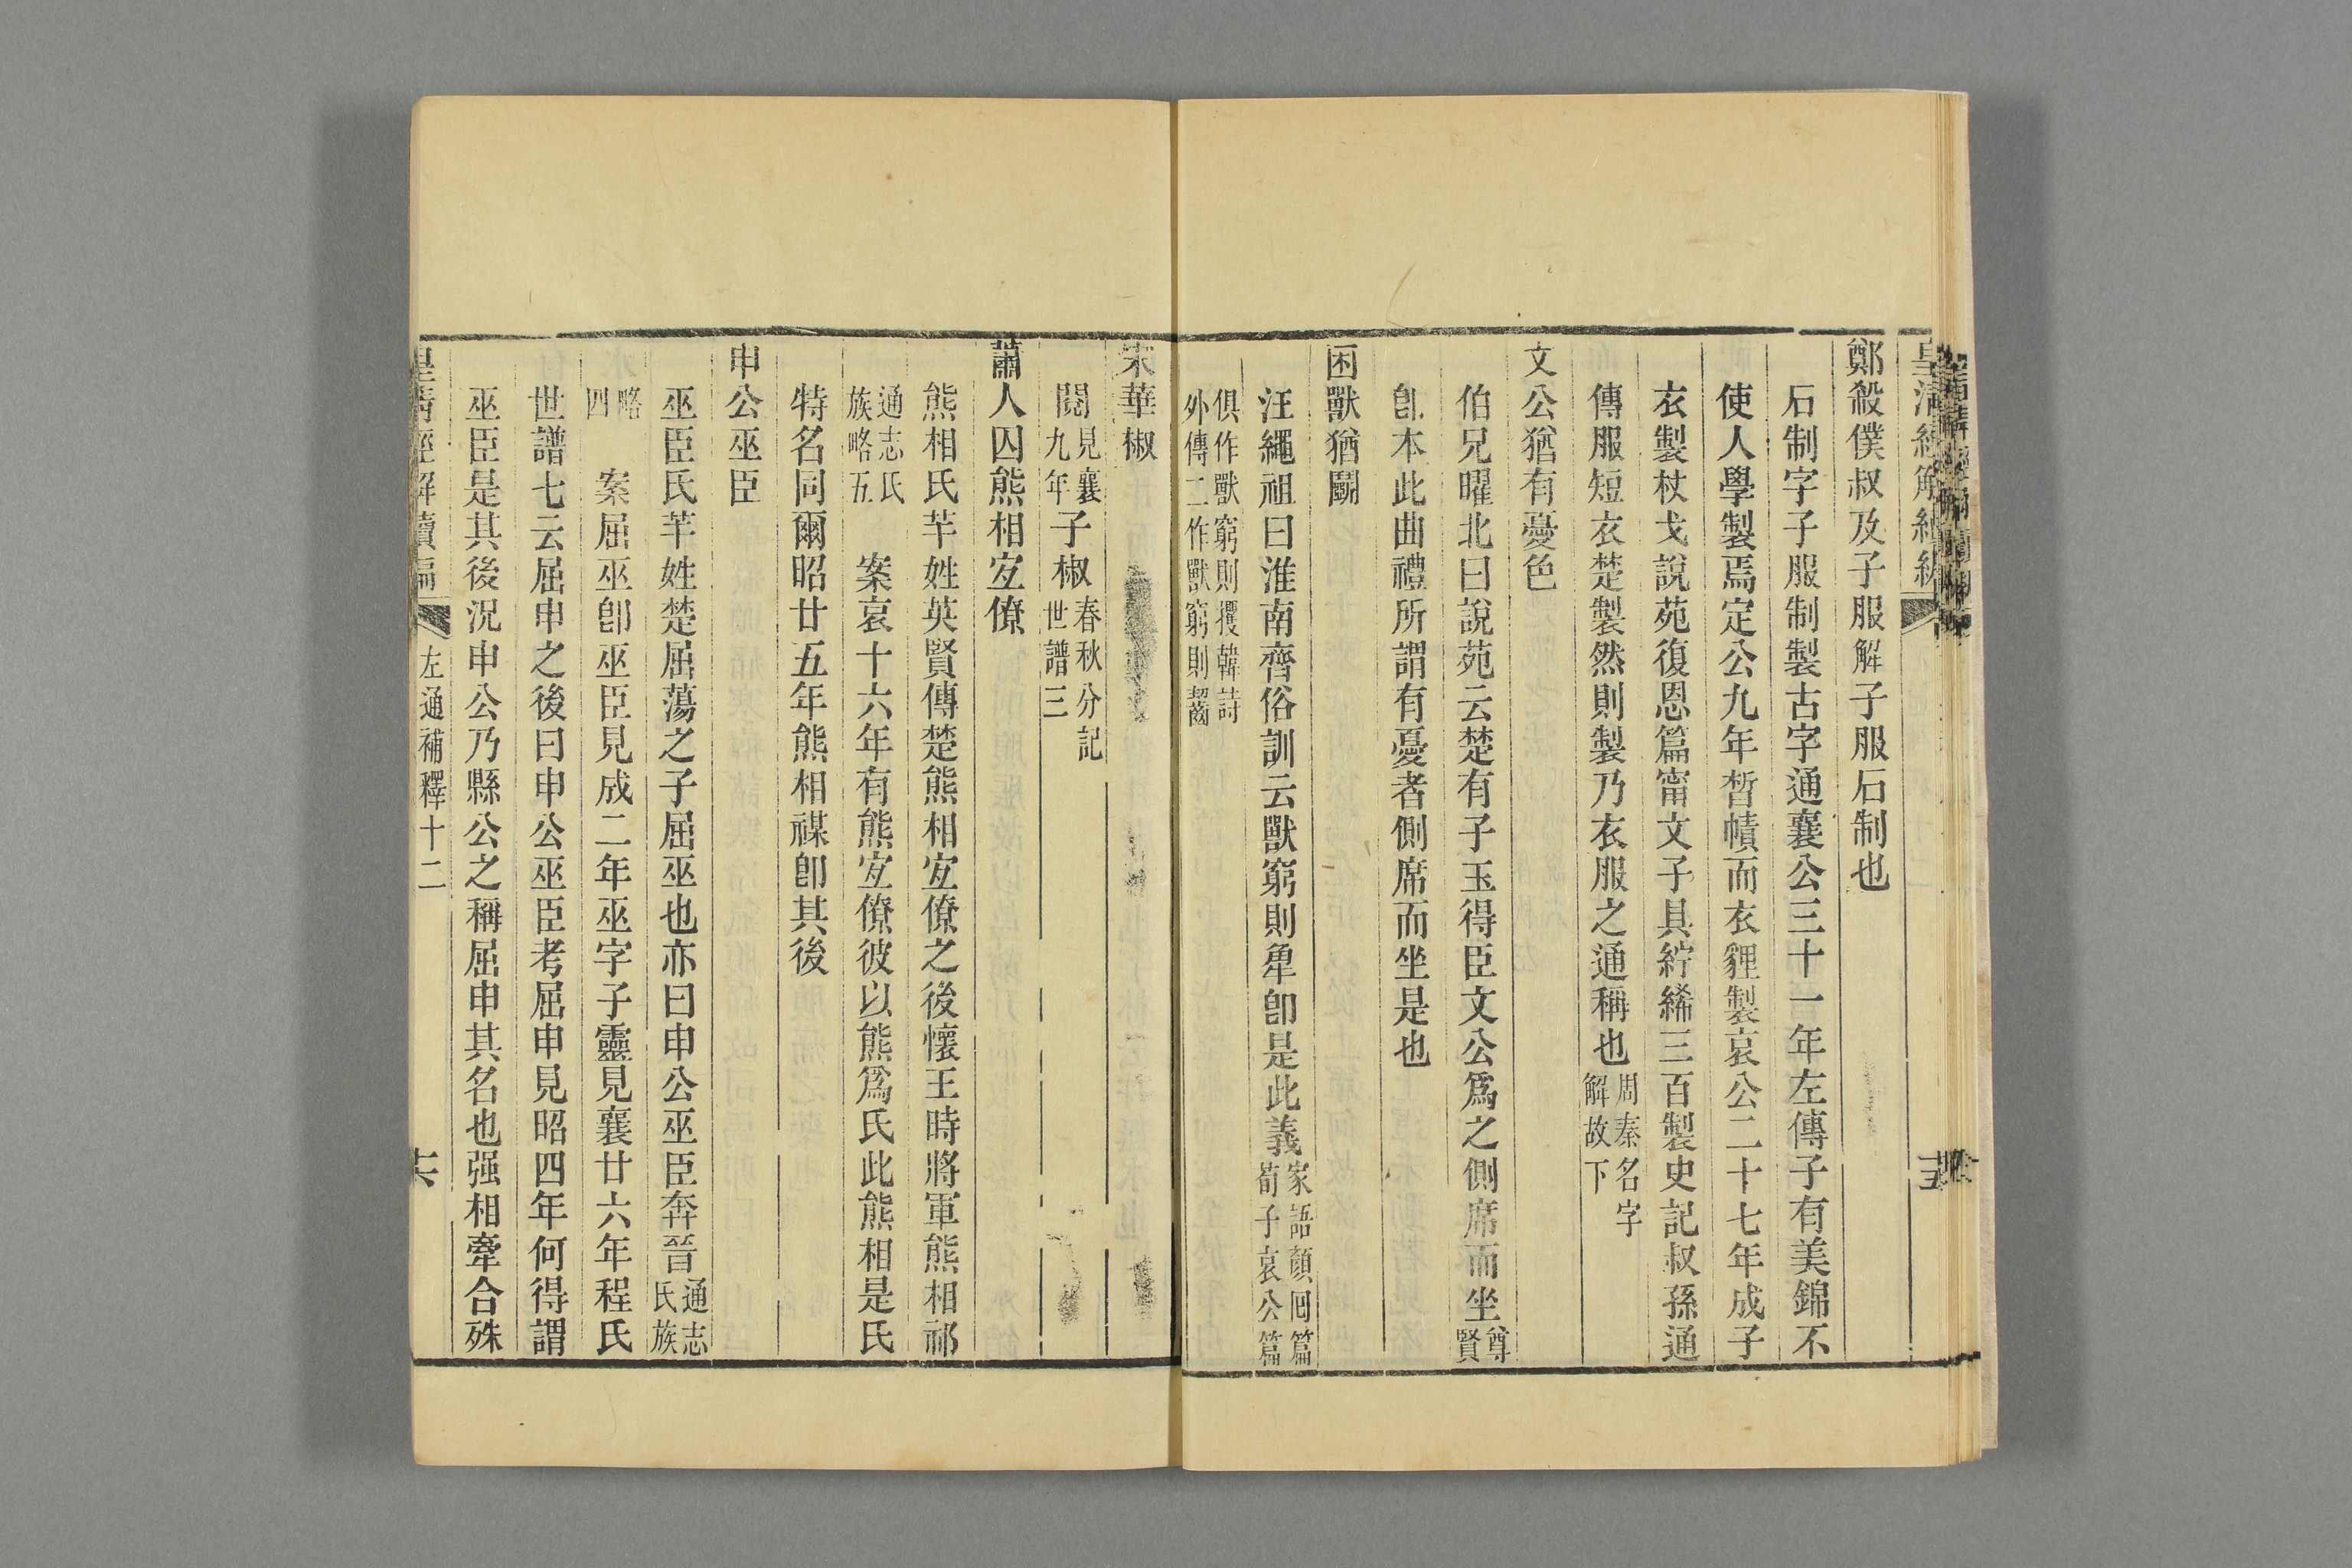 鄭殺僕叔及子服解子服石制也
石制字子服制製古字通襄公三十一年左傳子有美錦不
使人學製焉定公九年晳幘而衣貍製哀公二十七年成子
衣製杖戈說苑復恩篇甯文子具紵絺三百製史記叔孫通
傳服短衣楚製然則製乃衣服之通稱也周秦名字解故下
文公猶有憂色
伯兄曜北曰說苑云楚有子玉得臣文公爲之側席而坐尊賢
卽本此曲禮所謂有憂者側席而坐是也
困獸猶鬬
汪繩祖曰淮南齊俗訓云獸窮則㹈卽是此義家語顏回篇荀子哀公篇
俱作獸窮則攫韓詩外傳二作獸窮則齧
宋華椒
閱見襄九年子椒春秋分記世譜三
蕭人囚熊相宐僚
熊相氏芊姓英賢傳楚熊相宐僚之後懷王時將軍熊相祁
通志氏族略五 案哀十六年有熊宐僚彼以熊爲氏此熊相是氏
特名同爾昭廿五年熊相禖卽其後
申公巫臣
巫臣氏芊姓楚屈蕩之子屈巫也亦曰申公巫臣奔晉通志氏族
略四 案屈巫卽巫臣見成二年巫字子靈見襄廿六年程氏
世譜七云屈申之後曰申公巫臣考屈申見昭四年何得謂
巫臣是其後況申公乃縣公之稱屈申其名也强相牽合殊
皇清經解續編 左通補釋十二 十六